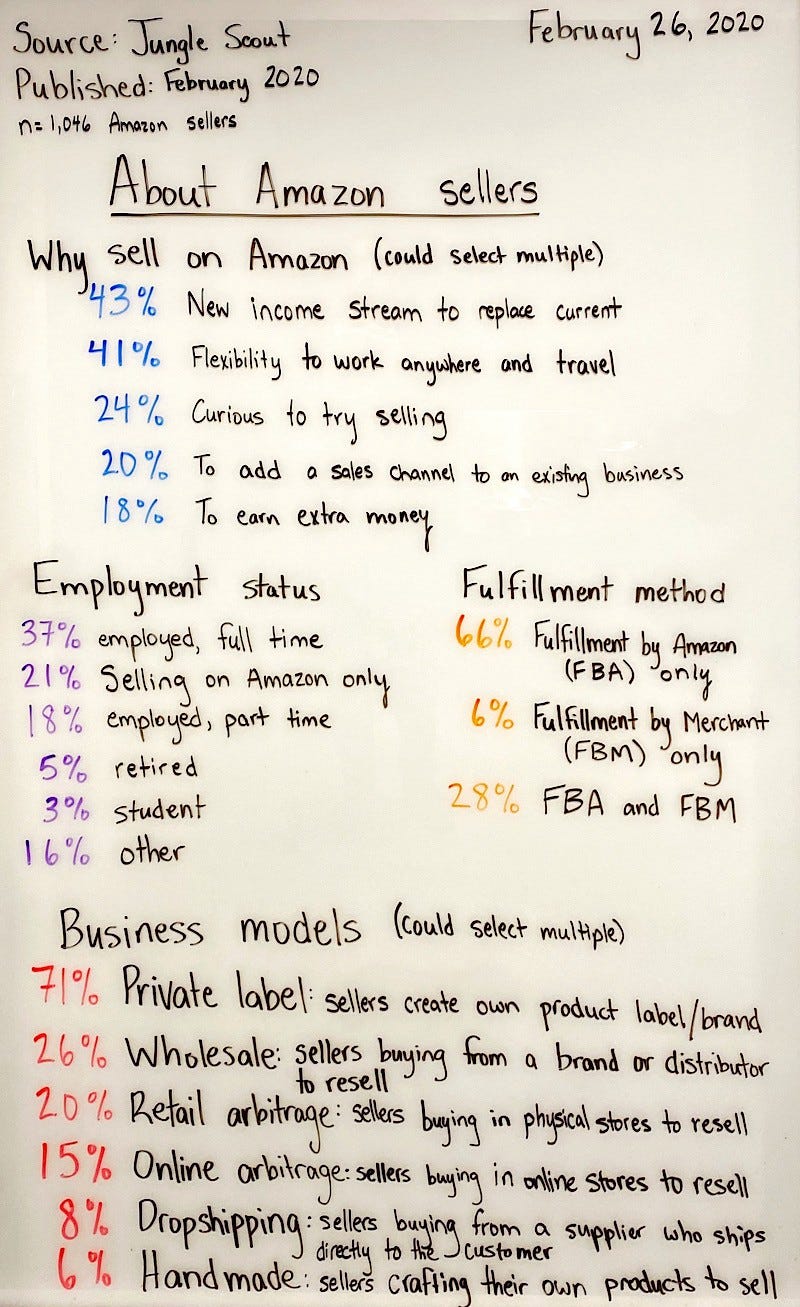 Source: Jungle Scout
February 26, 2020
Published: February 2020
n=1,046 Amazon sellers
About Amazon sellers
Why sell on Amazon (could select multiple)
43% New income stream to replace current
41% Flexibility to work anywhere and travel
24% Curious to try selling
20% To add a sales channel to an existing business
18% To earn extra money
Employment status
37% employed, full time
21% Selling on Amazon only
18% employed, part time
5% retired
3% student
16% other
Fulfillment method
66% Fulfillment by Amazon
(FBA) only
6% Fulfillment by Merchant
(FBM) only
28% FBA and FBM
Business models (could select multiple)
71% Private label: sellers create own product label/brand
26% Wholesale: sellers buying from a brand or distributor
to resell
20% Retail arbitrage: sellers buying in physical stores to resell
15% Online arbitrage: sellers buying in online stores to resell
8% Dropshipping: sellers buying from a supplier who ships
directly to the customer
6% Handmade: sellers crafting their own products to sell